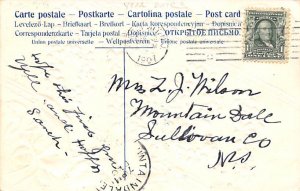 Carte postale - Postkarte - Cartolina postale - Post card
Levelező-Lap - Briefkaart - Brefkort - Karta korespondencyjna - Dopisnica
Correspondenzkarte - Tarjeta postal - Dopisnice - ОТКРЫТОЕ ПИСЬМО
Union postale universelle - Weltpostverein - Union postale universelle
1907
Mrs L. J. Wilson
Mountain Dale
Sullivan Co
N.Y.
Hope this finds
well and happy
Sarah